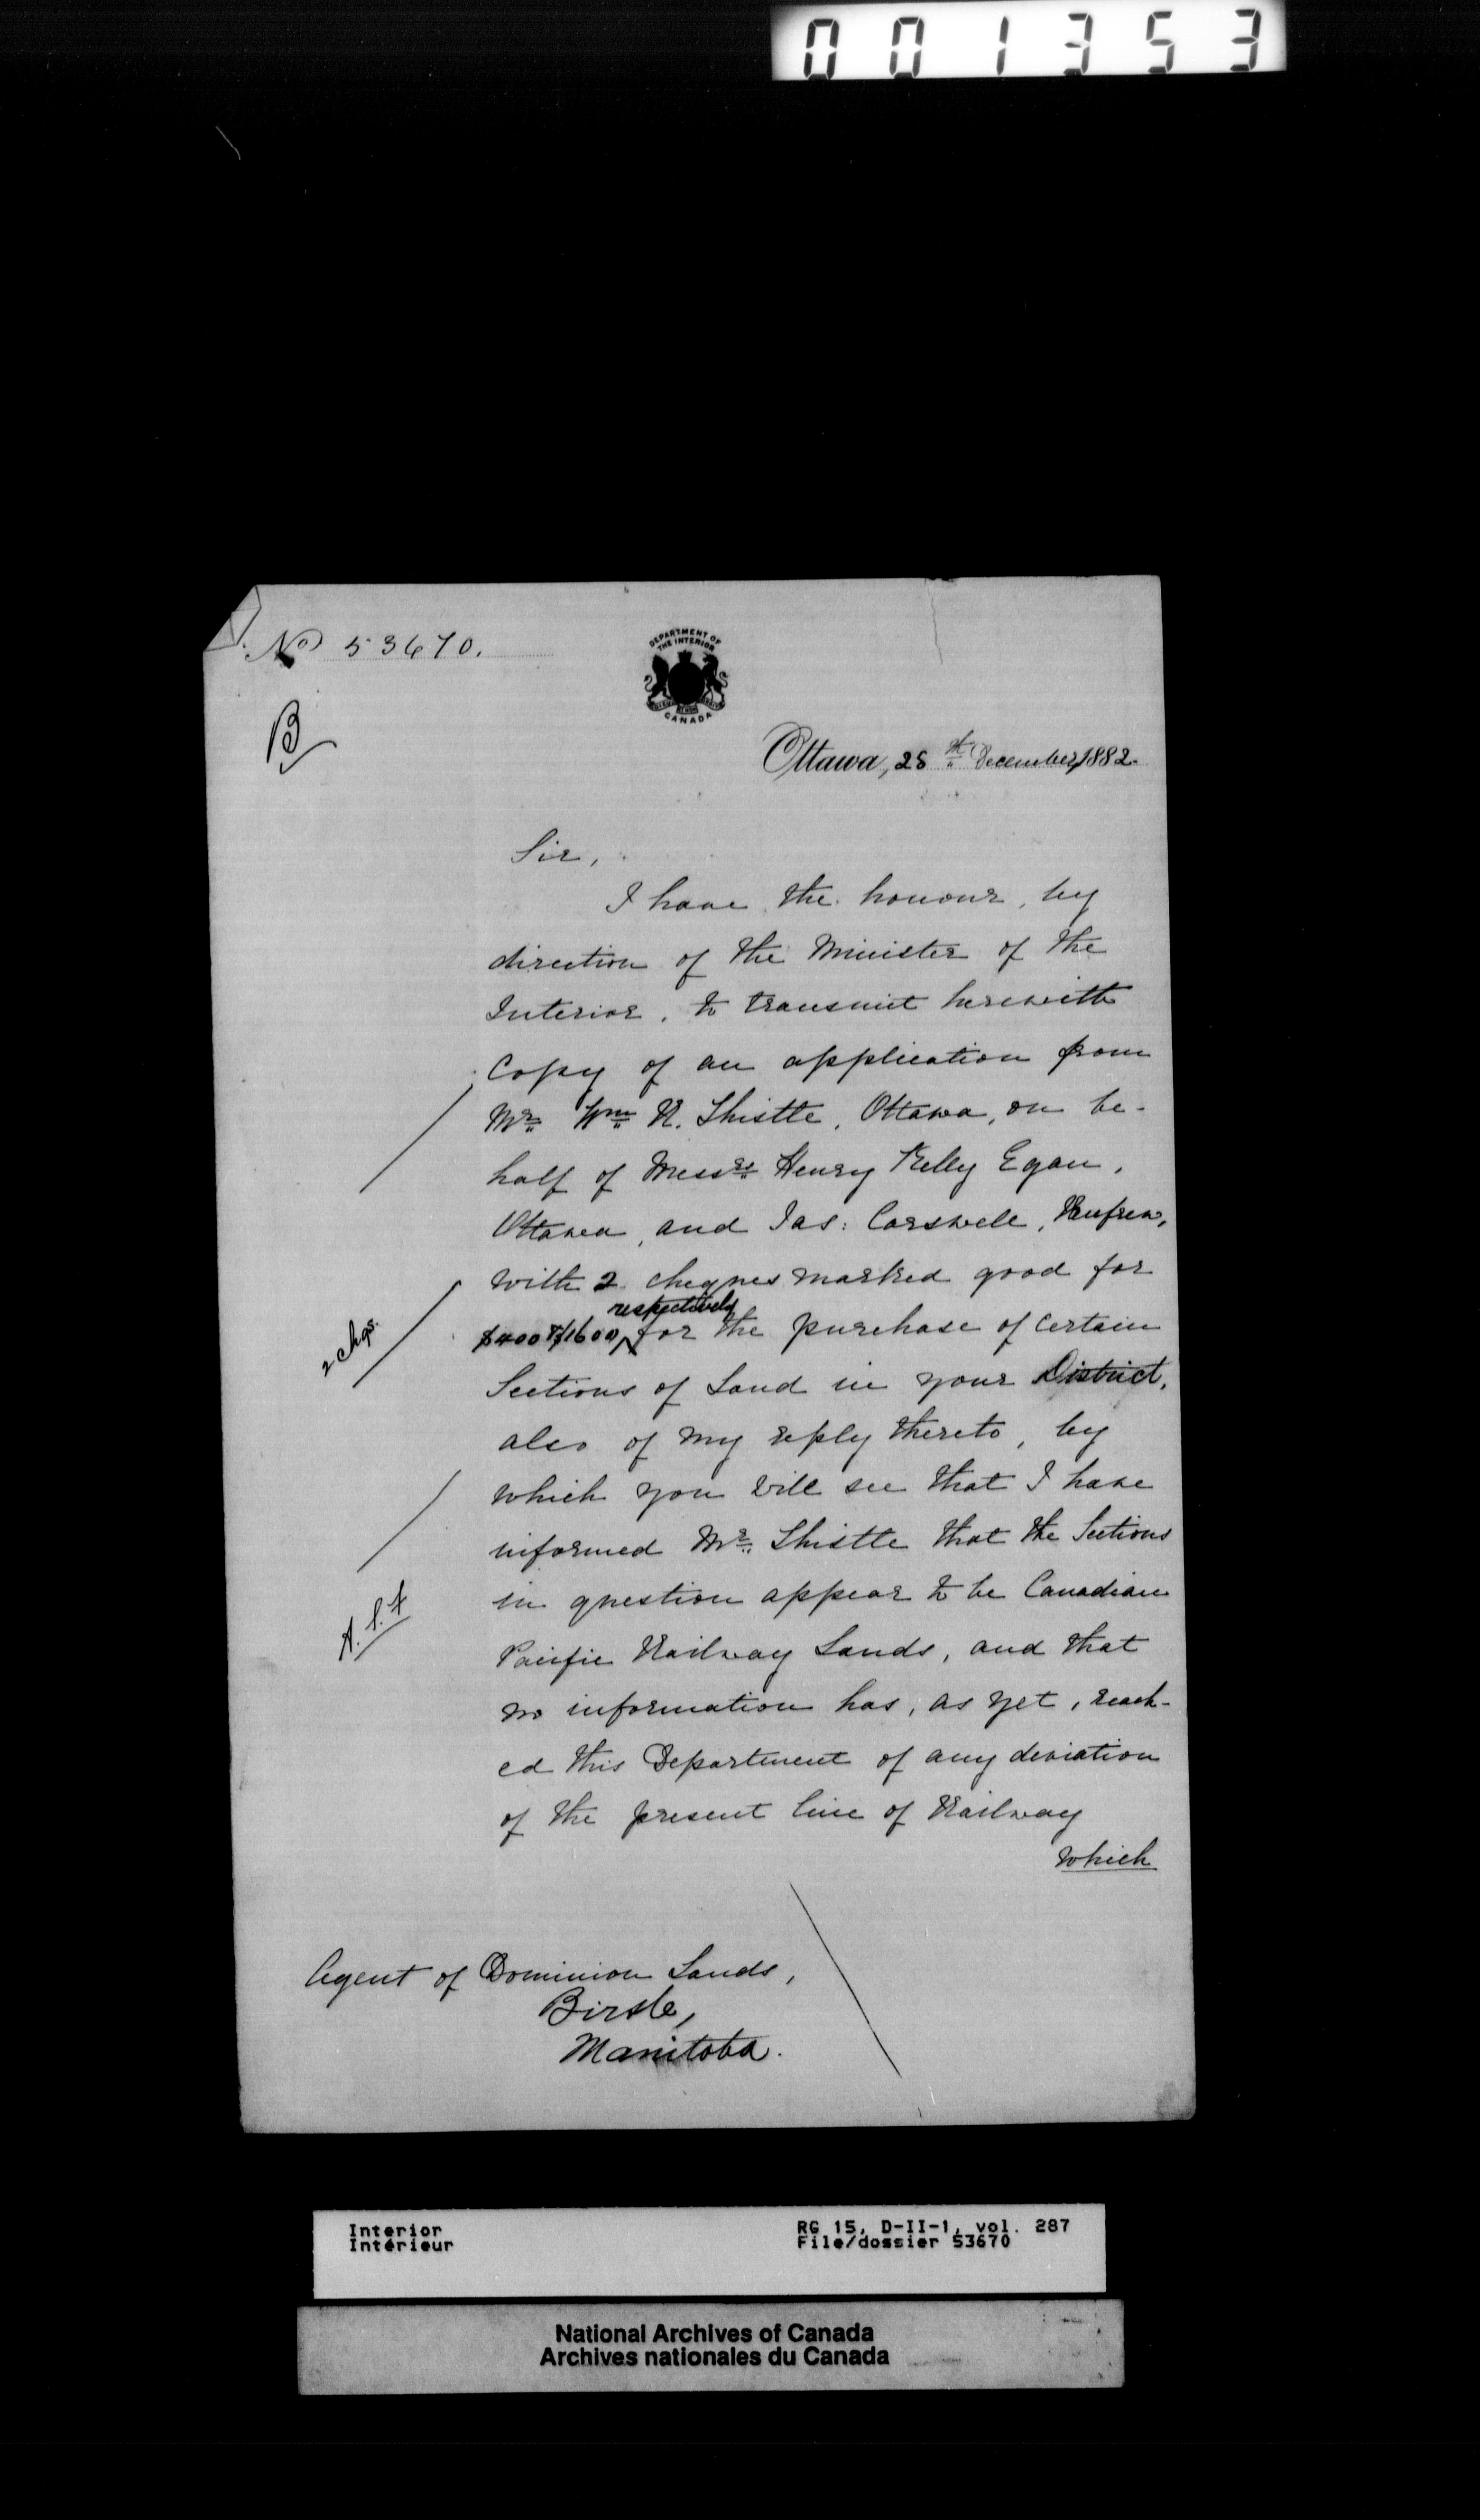 001353
No 53670.
DEPARTMENT OF
THE INTERIOR
CANADA
B
Ottawa, 28th December, 1882.
Sir,
I have the honour, by
direction of the Minister of the
Interior, to transmit herewith
Copy of an application from
Mr Wm R. Thistle, Ottawa, on be-
half of Messrs Henry Kelly Egan,
Ottawa, and Jas: Carswell, Renfrew,
With 2 cheques marked good for
respectively
$400 & $1600, for the purchase of certain
2 chqs.
Sections of Land in your District,
also of my reply thereto, by
which you will see that I have
informed Mr Thistle that the Sections
in question appear to be Canadian
Pacific Railway Lands, and that
no information has, as yet, reach-
ed this Department of any deviation
of the present line of Railway
which
Agent of Dominion Lands,
Birtle,
Manitoba.
Interior
Intérieur
RG 15, D-II-1, vol. 287
File/dossier 53670
National Archives of Canada
Archives nationales du Canada